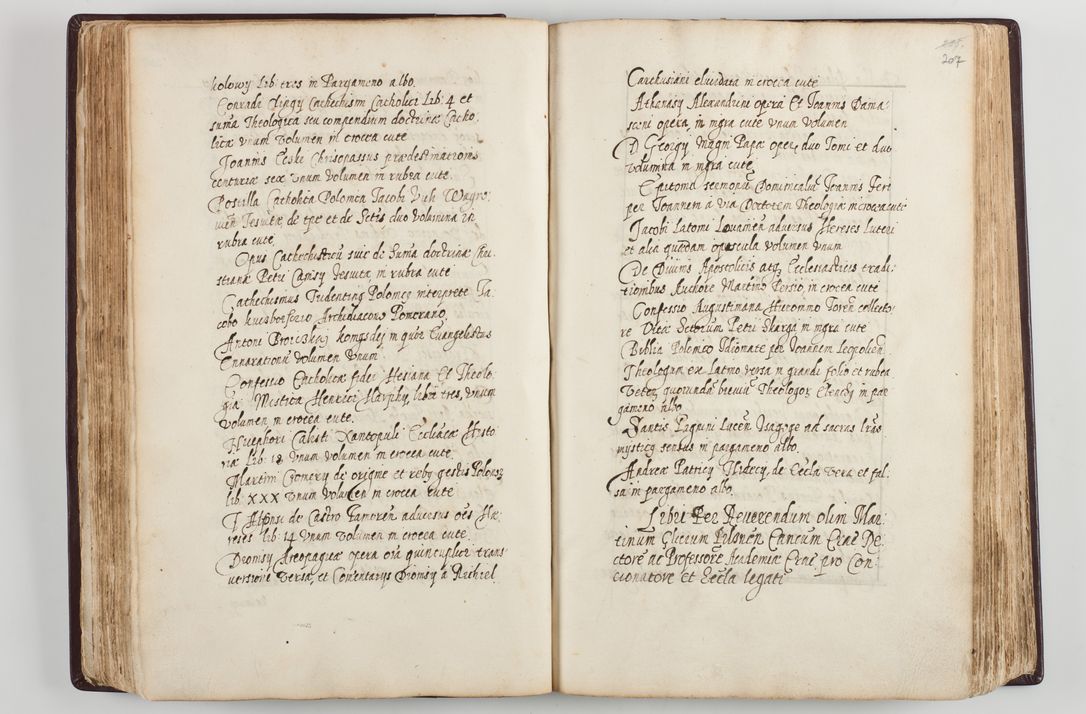 kolowy Lib: tres in Pargameno albo.
Conradi Clingy Cathechismi Catholici Lib: 4 et
sum̃a Theologica seu compendium doctrinæ Catho
licæ vnum volumen in crocea cute
Joannis Eckÿ Chrisopassus prædestinationis
centuriæ sex vnum volumen in rubea cute.
Postilla Catholica Polonica Jacobi Viek Wagro
uien̄ Jesuitæ, de tpe et de Sctis duo volumina in
rubra cute.
Opus Cathechisticũ siue de Sum̃a doctrinæ Chri
stianæ Petri Canisy Jesuita in rubra cute
Cathechismus Tridentin9 Polonico interprete Ja
cobo kuczborscio Archidiacono Pomerano.
Antoni Broickwy konigstej in quor Euangelistas
Ennarationũ volumen vnum
Confessio Catholicæ fidei Hosiana Et Theolo
gia Mistica Henrici Harphy, libri tres, vnum
volumen in crocea cute.
Nicephori Calisti Xantopuli Ecclīæ Histo
riæ Lib: 18 vnum volumen in crocea cute
Martini Cromery de origine et reb9 gestis Polonor
lib: XXX vnum volumen in crocea cute
F Alfonsi de Castro Zamoren̄ aduersus oēs Hæ
reses lib: 14 vnum volumen in crocea cute.
Dionisy Areopagitæ opera oīa quincuplici trans
versione versa, et Com̄entarys Dionisy à Richiel
207
Carthusiani elucidata in crocea cute
Athanasy Alexandrini opera Et Joannis Dama
sceni opera in nigra cute vnum volumen
D Georgy Magni Papæ oper duo Tomi et duo
volumina in nigra cute
Epitome sermonũ Dominicaliũ Joannis Feri
per Joannem à via Doctorem Theologiæ in crocea cute
Jacobi Latomi Louanien̄ aduersus Hereses Luteri
et alia quædam opuscula volumen vnum
De Diuinis Apostolicis atq Ecclesiasticis tradi
tionibus Authore Martino Persio, in crocea cute
Confessio Augustiniana Hieronimo Toren̄ collecto
re Vitæ Sctorum Petri Skarga in nigra cute
Biblia Polonico Idiomate per Joannem Leopolien̄
Theologum ex Latino versa in grandi folio et rubea
Veter quorundã breuiũ Theologor Elenchy in par
gameno albo
Santis Pagnini Lucen̄ Isagoge ad sacras Lr̃as
mysticq sensus in pargameno albo.
Andreæ Patricy Nidecy, de Eccla vera et fal
sa in pargameno albo.
Libri Per Reuerendum olim Mar
tinum Glicium Pilsnen̄ Canicum Crac̃ Do
ctorē ac Professorē Academiæ Crac̃ pro Con
cionatore et Eccla legati